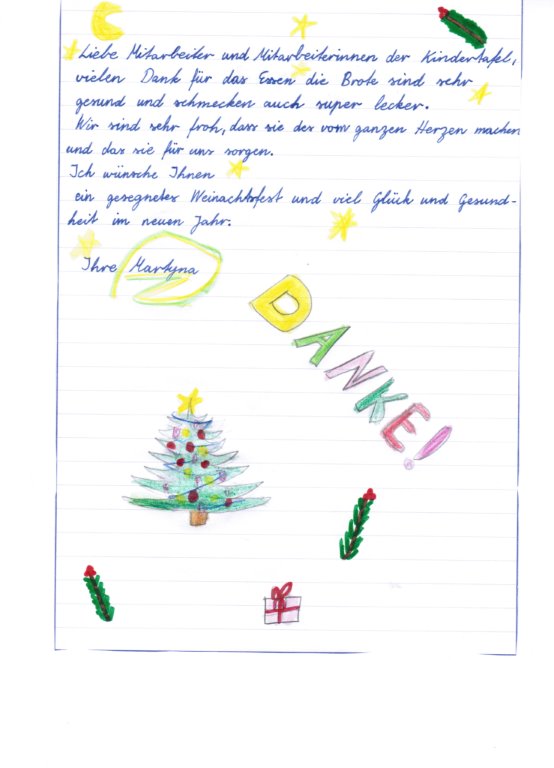 Liebe Mitarbeiter und Mitarbeiterinnen der Kindertafel,
vielen Dank für das Essen die Brote sind sehr
gesund und schmecken auch super lecker.
Wir sind sehr froh, dass sie des vom ganzen Herzen machen
und das sie für uns sorgen.
Ich wünsche Ihnen
ein gesegnetes Weinachtsfest und viel Glück und Gesund-
heit im neuen Jahr.
Ihre Martyna
DANKE!